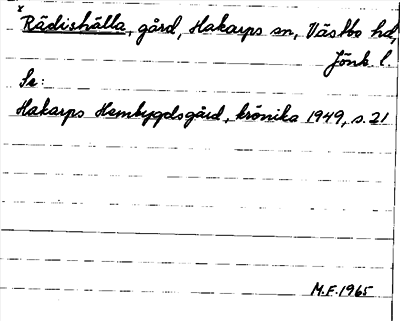 x
Rädishälla, gård, Hakarps sn, Västbo hd,
Jönk. l.
Se:
Hakarps Hembygdsgård, krönika 1949, s. 21
M.F. 1965